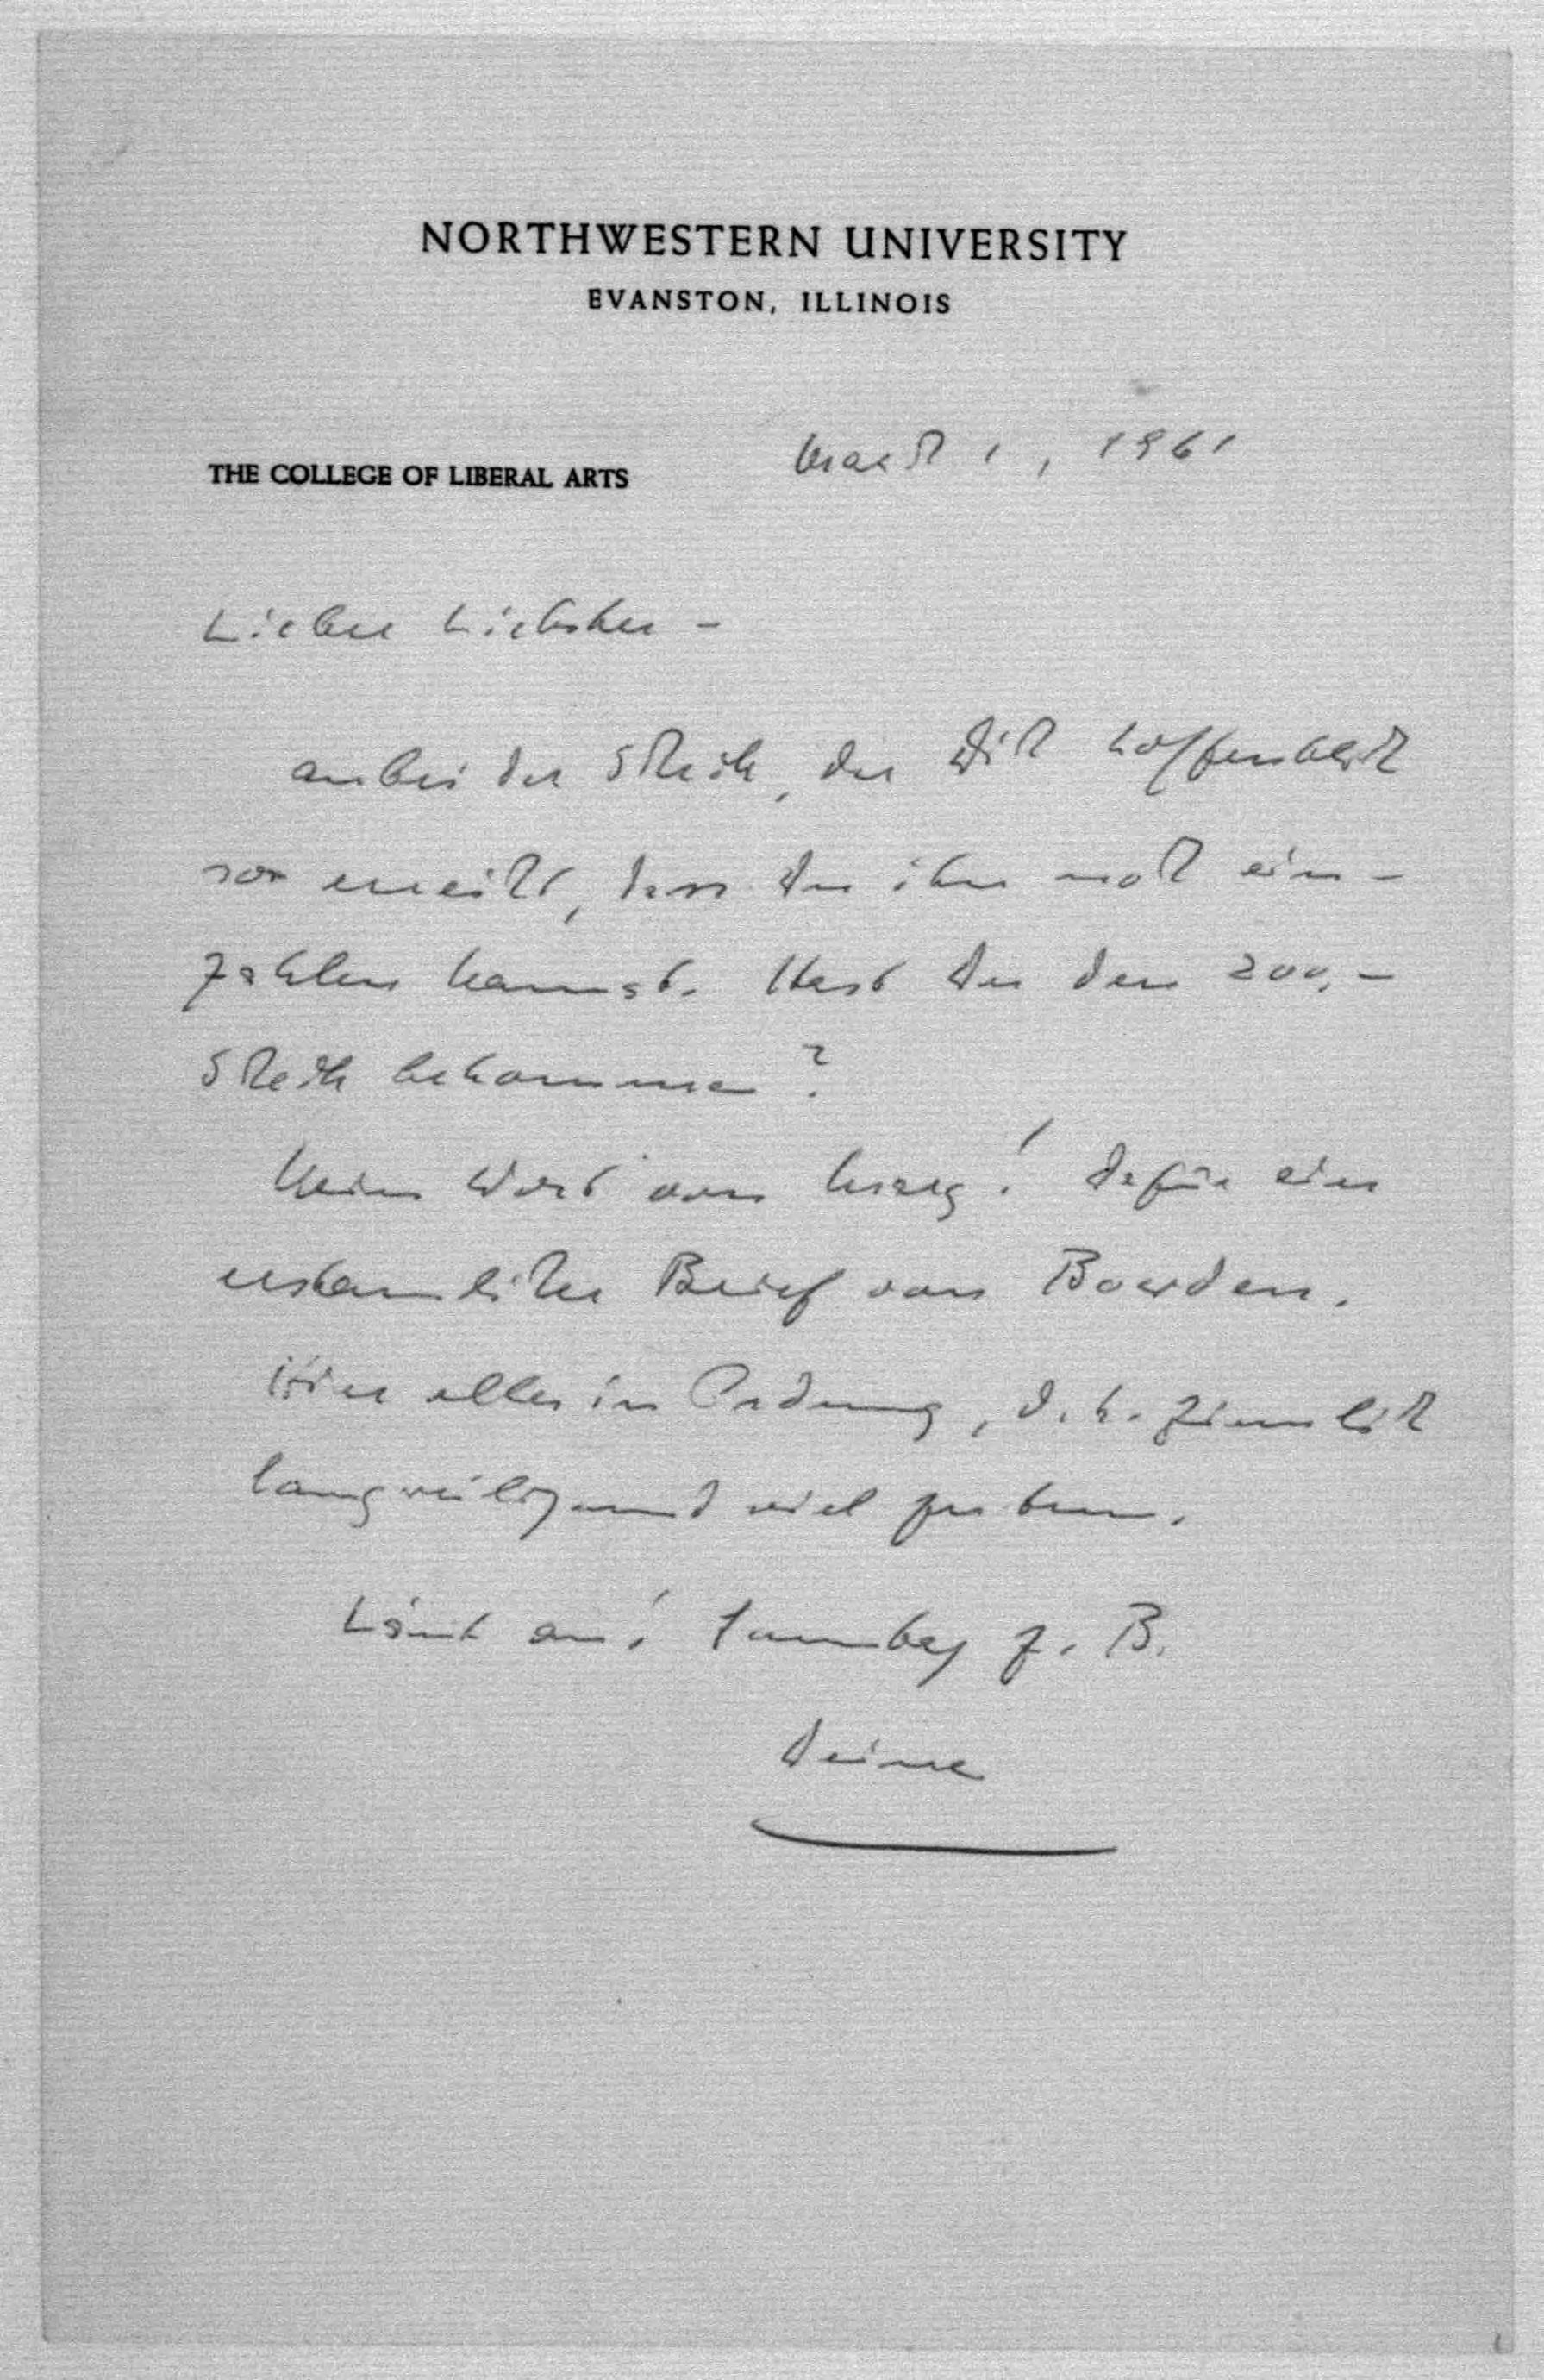 NORTHWESTERN UNIVERSITY
EVANSTON, ILLINOIS
THE COLLEGE OF LIBERAL ARTS
March 1, 1961
Lieber Liebster –
anbei der Scheck, der Dich hoffentlich
so erreicht, dass Du ihn noch ein-
zahlen kannst. Hast Du den 200,–
Scheck bekommen?
Kein Wort von! Dafür ein
erstaunlicher Brief von Bowden.
Hier alles in Ordnung, d.h. ziemlich
langweilig und viel zu tun.
Läut an! Sunday z.B.
Deine